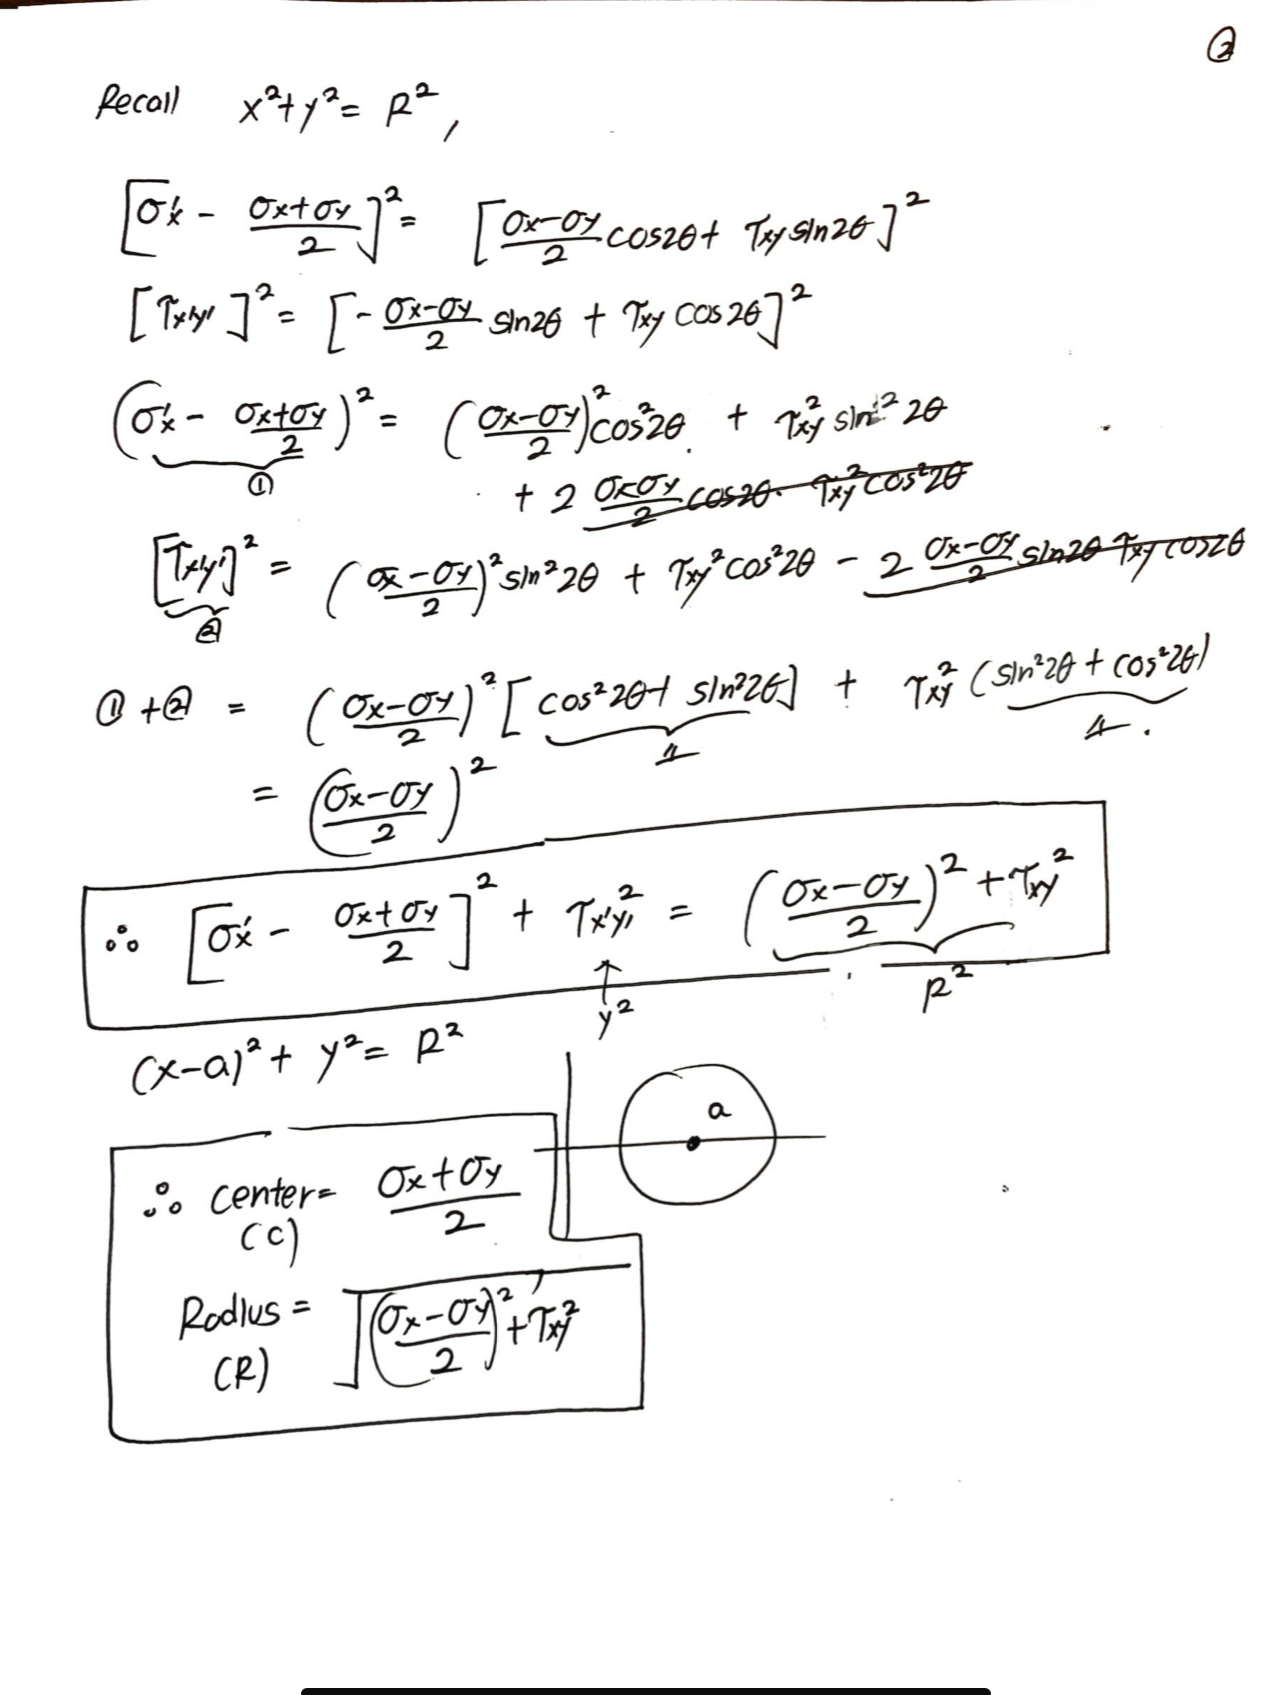 ②
Recall x²+y²= R²,
[σx' - (σx+σy)/2]² = [(σx-σy)/2 cos2θ + τxy sin2θ]²
[τx'y']² = [- (σx-σy)/2 sin2θ + τxy cos2θ]²
(σx' - (σx+σy)/2)² = ((σx-σy)/2)² cos²2θ + τxy² sin²2θ
①
+ 2 (σxσy)/2 cos2θ · τxy² cos²2θ
[τx'y']² = ((σx-σy)/2)² sin²2θ + τxy² cos²2θ - 2 (σx-σy)/2 sin2θ τxy cos2θ
②
①+② = ((σx-σy)/2)² [cos²2θ + sin²2θ] + τxy² (sin²2θ + cos²2θ)
1 1.
= ((σx-σy)/2)²
∴ [σx' - (σx+σy)/2]² + τx'y'² = ((σx-σy)/2)² + τxy²
↑ y² R²
(x-a)² + y² = R²
a
∴ center = (σx+σy)/2
(C)
Radius = √(((σx-σy)/2)² + τxy²)
(R)